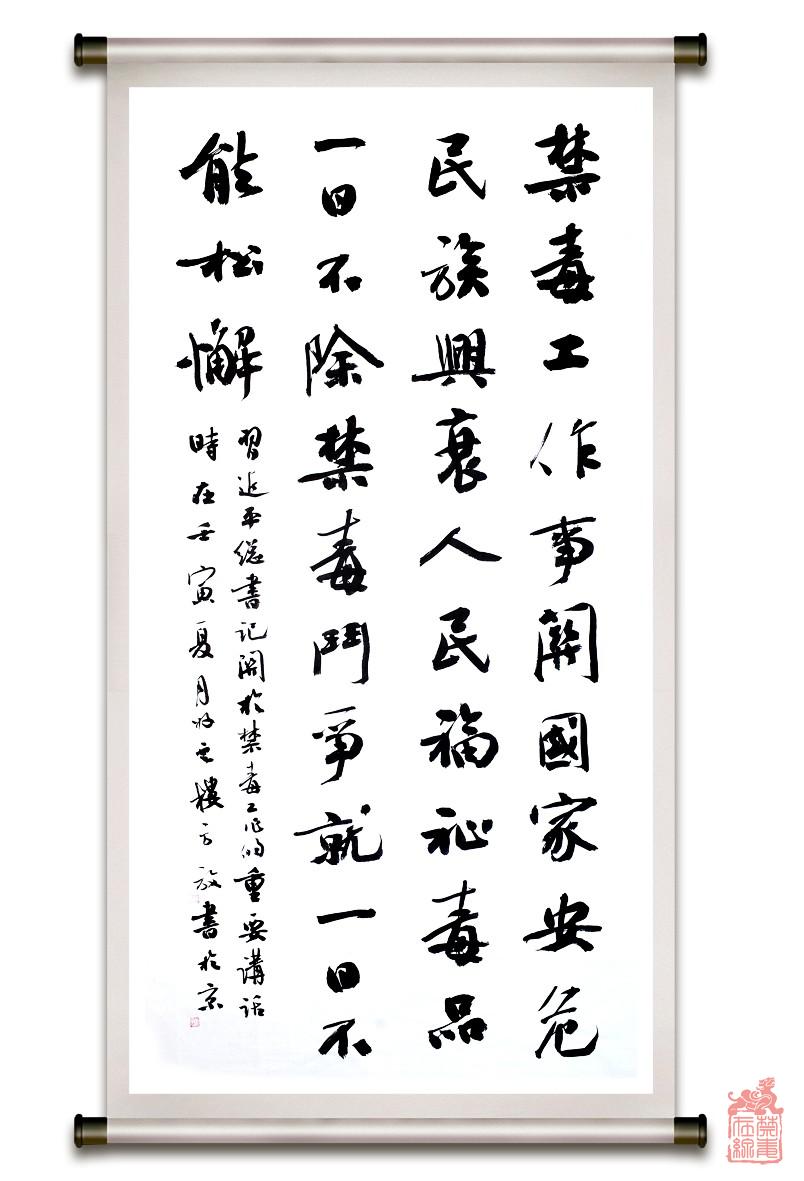 禁毒工作事關國家安危
民族興衰人民福祉毒品
一日不除禁毒鬥爭就一日不
能松懈
習近平總書記關於禁毒工作的重要講話
時在壬寅夏月好雲樓方放書於京